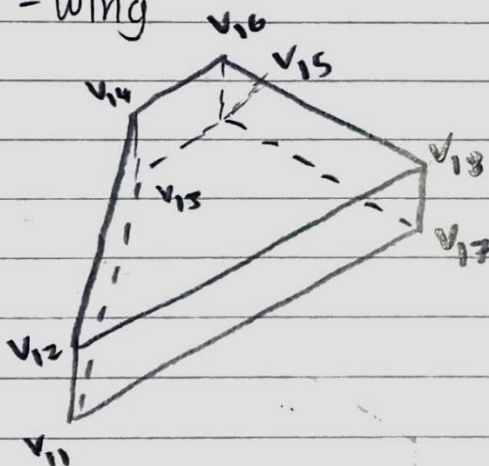 - wing
V16
V15
V14
V18
V13
V17
V12
V11